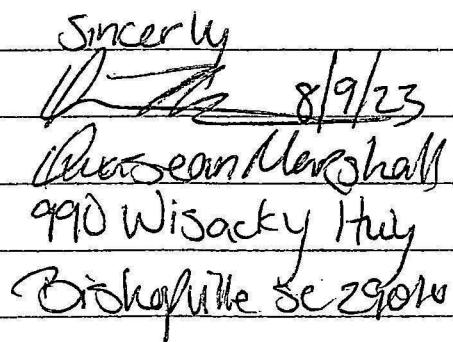 Sincerly
8/9/23
Quasean Marshall
990 Wisacky Hwy
Bishopville SC 29010